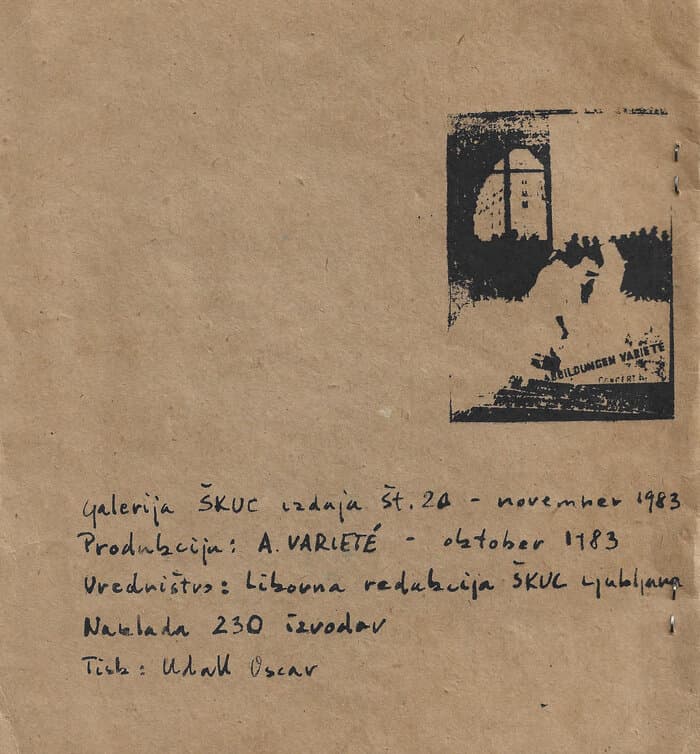 ABBILDUNGEN VARIETE
CONCERT
Galerija ŠKUC izdaja št. 20 - november 1983
Produkcija: A. VARIETÉ - oktober 1983
Uredništvo: Likovna redakcija ŠKUC Ljubljana
Naklada 230 izvodov
Tisk: Udall Oscar